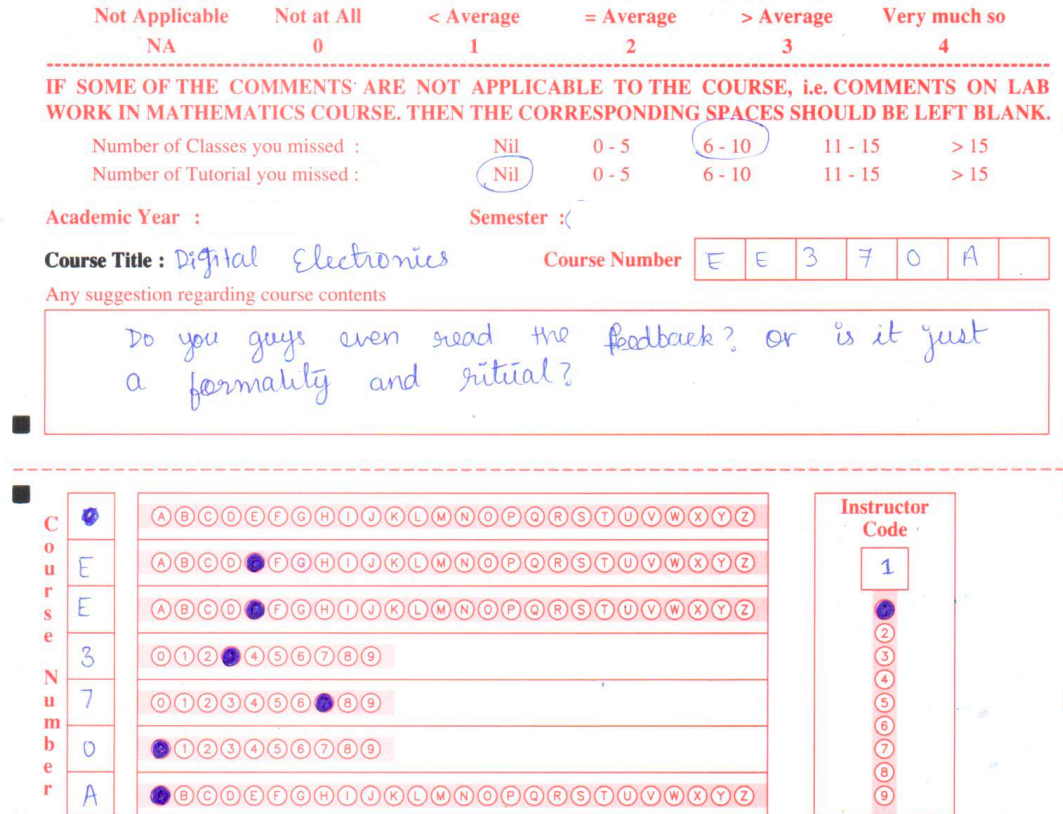 Not Applicable Not at All < Average = Average > Average Very much so
NA 0 1 2 3 4
IF SOME OF THE COMMENTS ARE NOT APPLICABLE TO THE COURSE, i.e. COMMENTS ON LAB
WORK IN MATHEMATICS COURSE. THEN THE CORRESPONDING SPACES SHOULD BE LEFT BLANK.
Number of Classes you missed : Nil 0 - 5 6 - 10 11 - 15 > 15
Number of Tutorial you missed : Nil 0 - 5 6 - 10 11 - 15 > 15
Academic Year : Semester :
Course Title : Digital Electronics Course Number E E 3 7 0 A
Any suggestion regarding course contents
Do you guys even read the feedback? or is it just
a formality and ritual?
Course Number
A B C D E F G H I J K L M N O P Q R S T U V W X Y Z
E A B C D F G H I J K L M N O P Q R S T U V W X Y Z
E A B C D F G H I J K L M N O P Q R S T U V W X Y Z
3 0 1 2 4 5 6 7 8 9
7 0 1 2 3 4 5 6 8 9
0 1 2 3 4 5 6 7 8 9
A B C D E F G H I J K L M N O P Q R S T U V W X Y Z
Instructor
Code
1
2
3
4
5
6
7
8
9